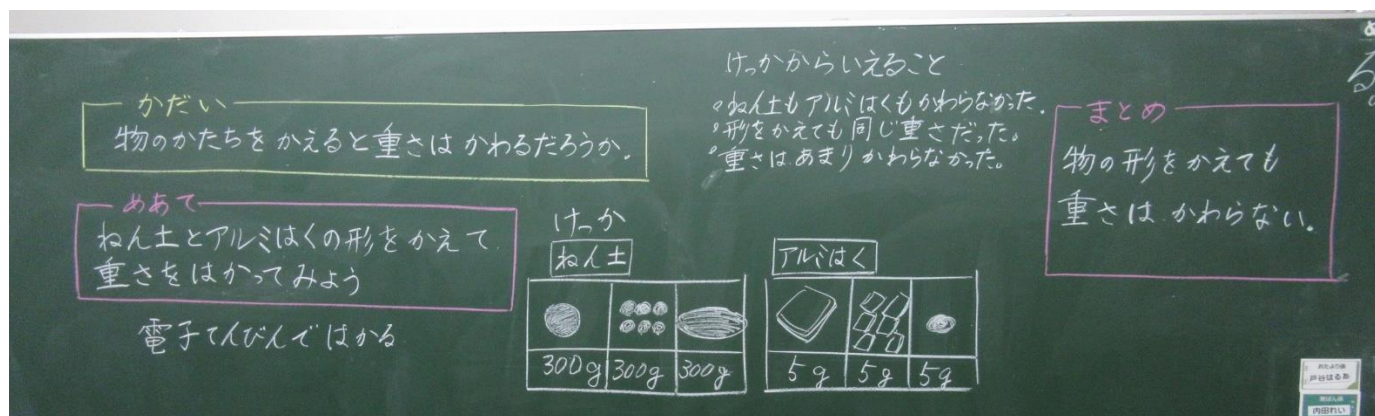 かだい
物のかたちをかえると重さはかわるだろうか。
めあて
ねん土とアルミはくの形をかえて
重さをはかってみよう
電子てんびんではかる
けっか
ねん土
300g 300g 300g
アルミはく
5g 5g 5g
けっかからいえること
。ねん土もアルミはくもかわらなかった。
。形をかえても同じ重さだった。
。重さはあまりかわらなかった。
まとめ
物の形をかえても
重さはかわらない。
る。
戸谷はるあ
内田れい